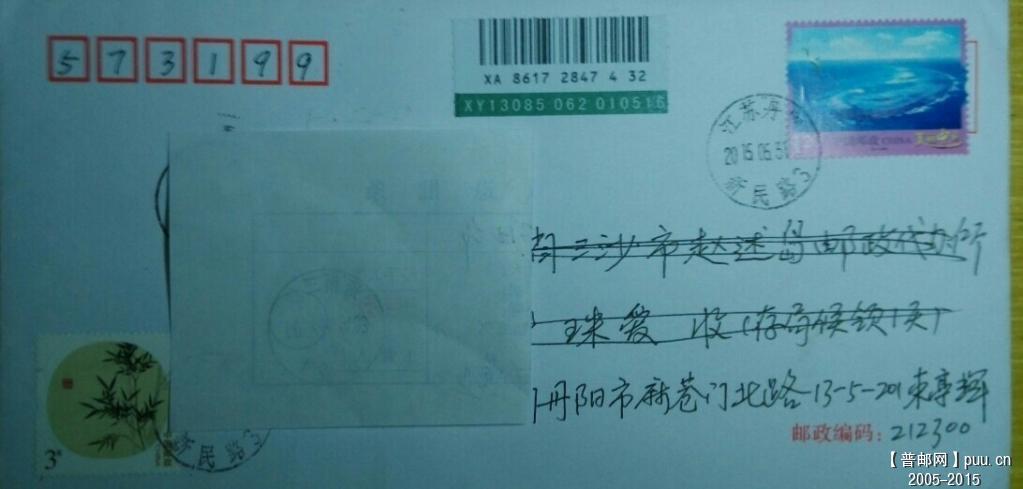 573199
XA 8617 2847 4 32
XY13085 062 010516
江苏丹阳
2015.05.31
新民路3
CHINA
三沙市赵述岛邮政代办所
珠爱 收(存局候领1天)
丹阳市麻巷门北路13-5-201束亭辉
邮政编码:212300
3元
新民路3
【普邮网】puu.cn
2005-2015